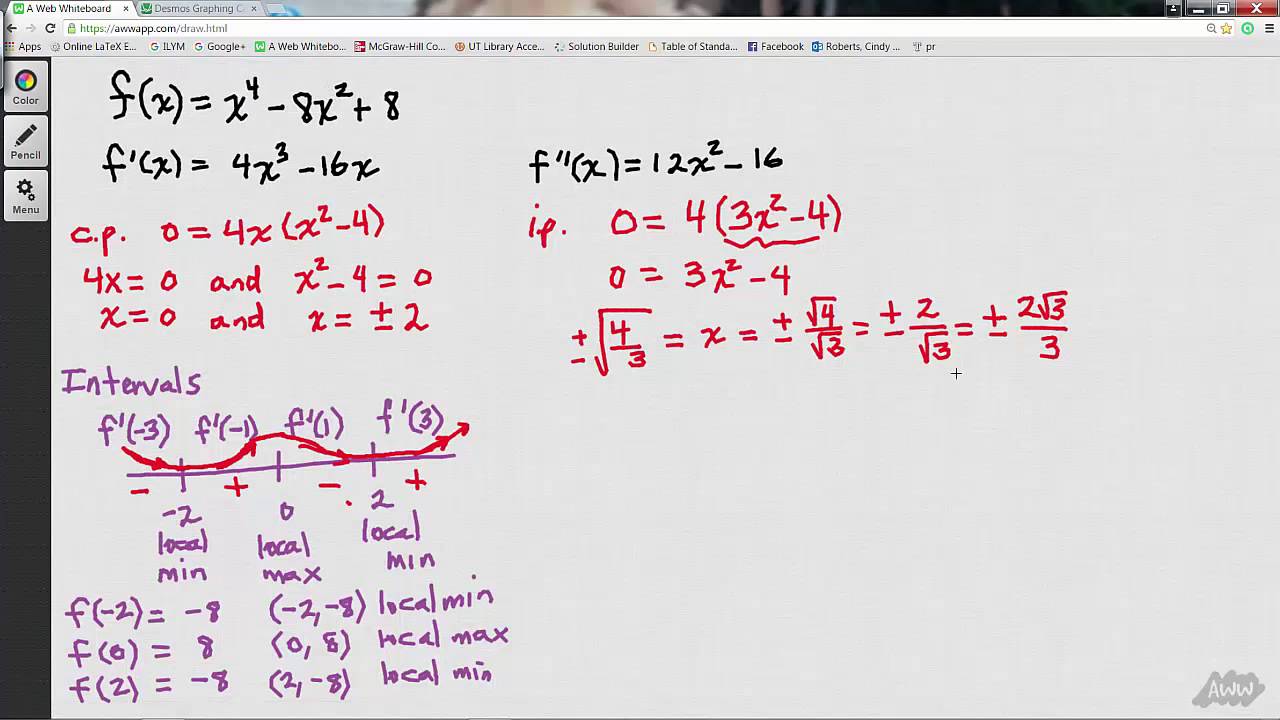 A Web Whiteboard
Desmos Graphing C
https://awwapp.com/draw.html
Apps
Online LaTeX E...
ILYM
Google+
A Web Whitebo...
McGraw-Hill Co...
UT Library Acce...
Solution Builder
Table of Standa...
Facebook
Roberts, Cindy ...
pr
Color
Pencil
Menu
f(x) = x⁴ - 8x² + 8
f'(x) = 4x³ - 16x
c.p. 0 = 4x(x² - 4)
4x = 0 and x² - 4 = 0
x = 0 and x = ± 2
f''(x) = 12x² - 16
i.p. 0 = 4(3x² - 4)
0 = 3x² - 4
±√(4/3) = x = ± √4/√3 = ± 2/√3 = ± 2√3/3
Intervals
f'(-3) f'(-1) f'(1) f'(3)
- + - +
-2 0 2
local local local
min max min
f(-2) = -8 (-2, -8) local min
f(0) = 8 (0, 8) local max
f(2) = -8 (2, -8) local min
AWW